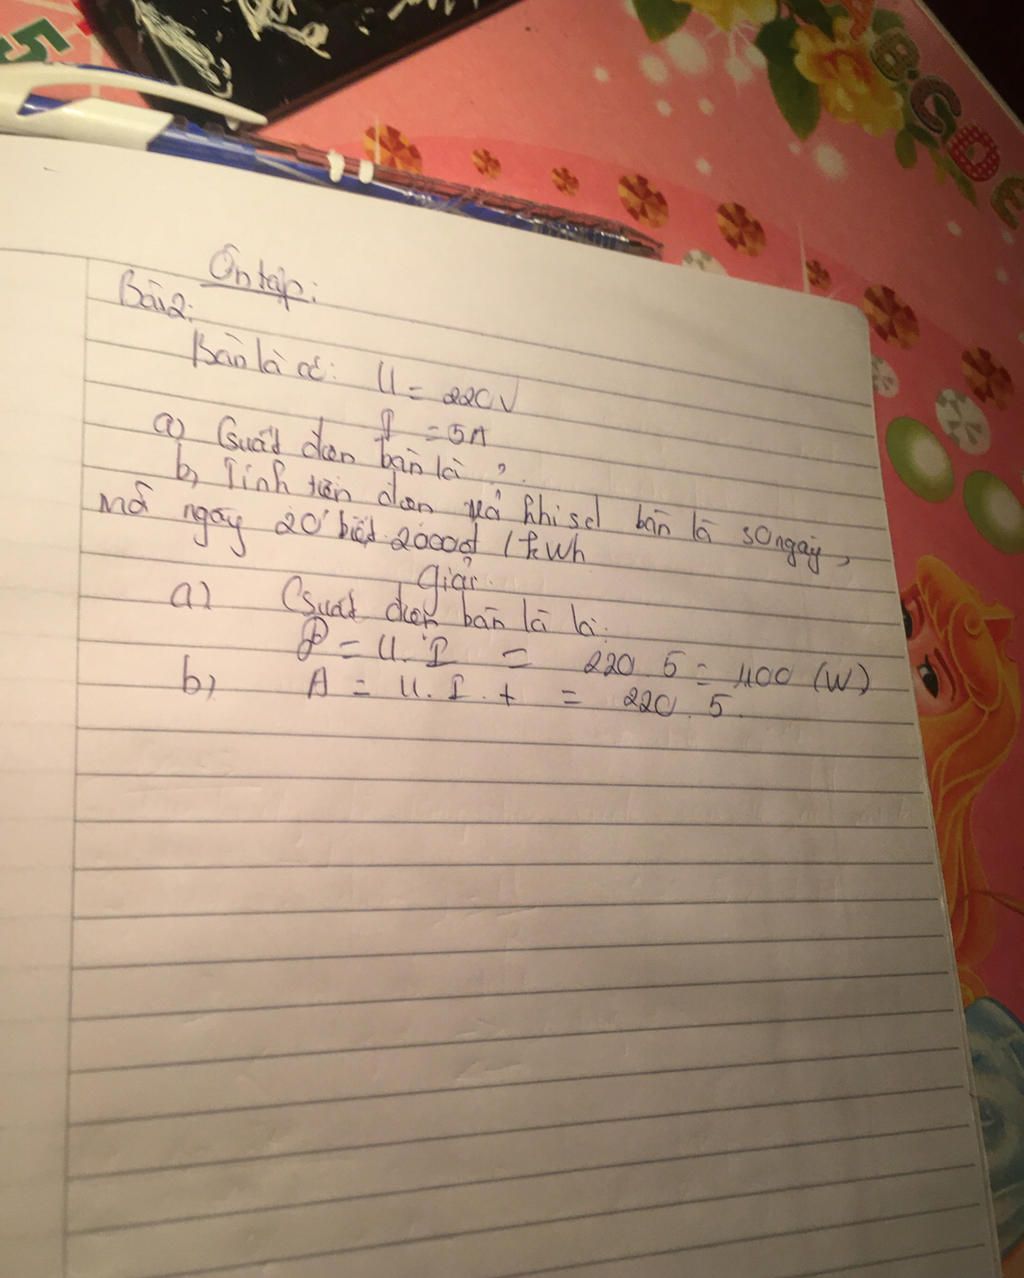 5
A B C D E
Ôn tập:
Bài 2:
Bàn là có: U = 220V
I = 5A
a) Csuất điện bàn là ?
b, Tính tiền điện khi sd bàn là 30 ngày,
mỗi ngày 20' biết 2000đ /kWh
Giải
a) Csuất điện bàn là là:
P = U.I = 220 5 = 1100 (W)
b) A = U.I.t = 220.5.